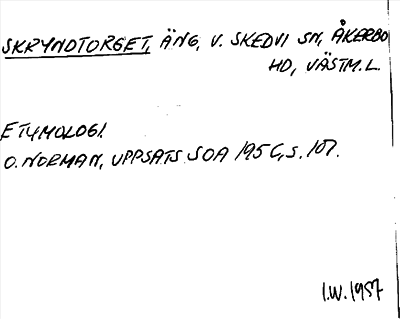 SKRYNDTORGET, ÄNG, V. SKEDVI SN, ÅKERBO
HD, VÄSTM.L.
ETYMOLOGI
O. NORMAN, UPPSATS SOA 195 C, S. 107.
I.W. 1957